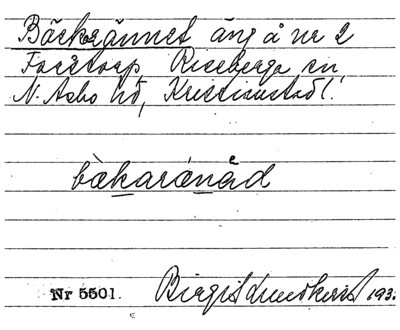 Bäckarännet äng å nr 2
Forstorp, Riseberga sn,
N. Åsbo hd, Kristianstads l.
bækarænəd
Nr 5501. Birgit Lundkvist 193.